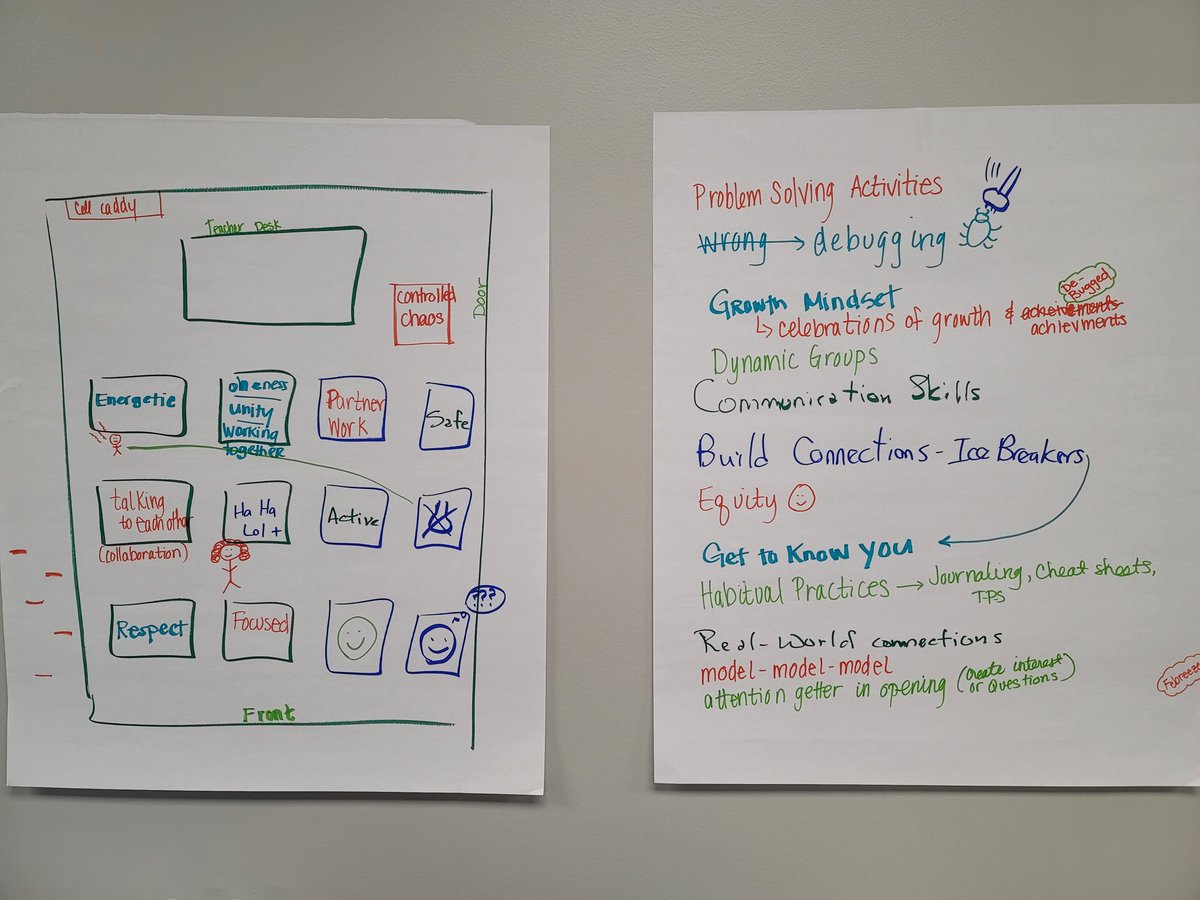 Cell caddy
Teacher Desk
Controlled
chaos
Door
Energetic
oneness
unity
working
together
Partner
Work
Safe
talking
to each other
(collaboration)
Ha Ha
Lol +
Active
Respect
Focused
???
Front
Problem Solving Activities
wrong → debugging
Growth Mindset
De-
Bugged
↳ celebrations of growth & acheivements
achievments
Dynamic Groups
Communication Skills
Build Connections - Ice Breakers
Equity
Get to Know you
Habitual Practices → Journaling, Cheat sheets,
TPS
Real-World connections
model-model-model
attention getter in opening (create interest
or Questions)